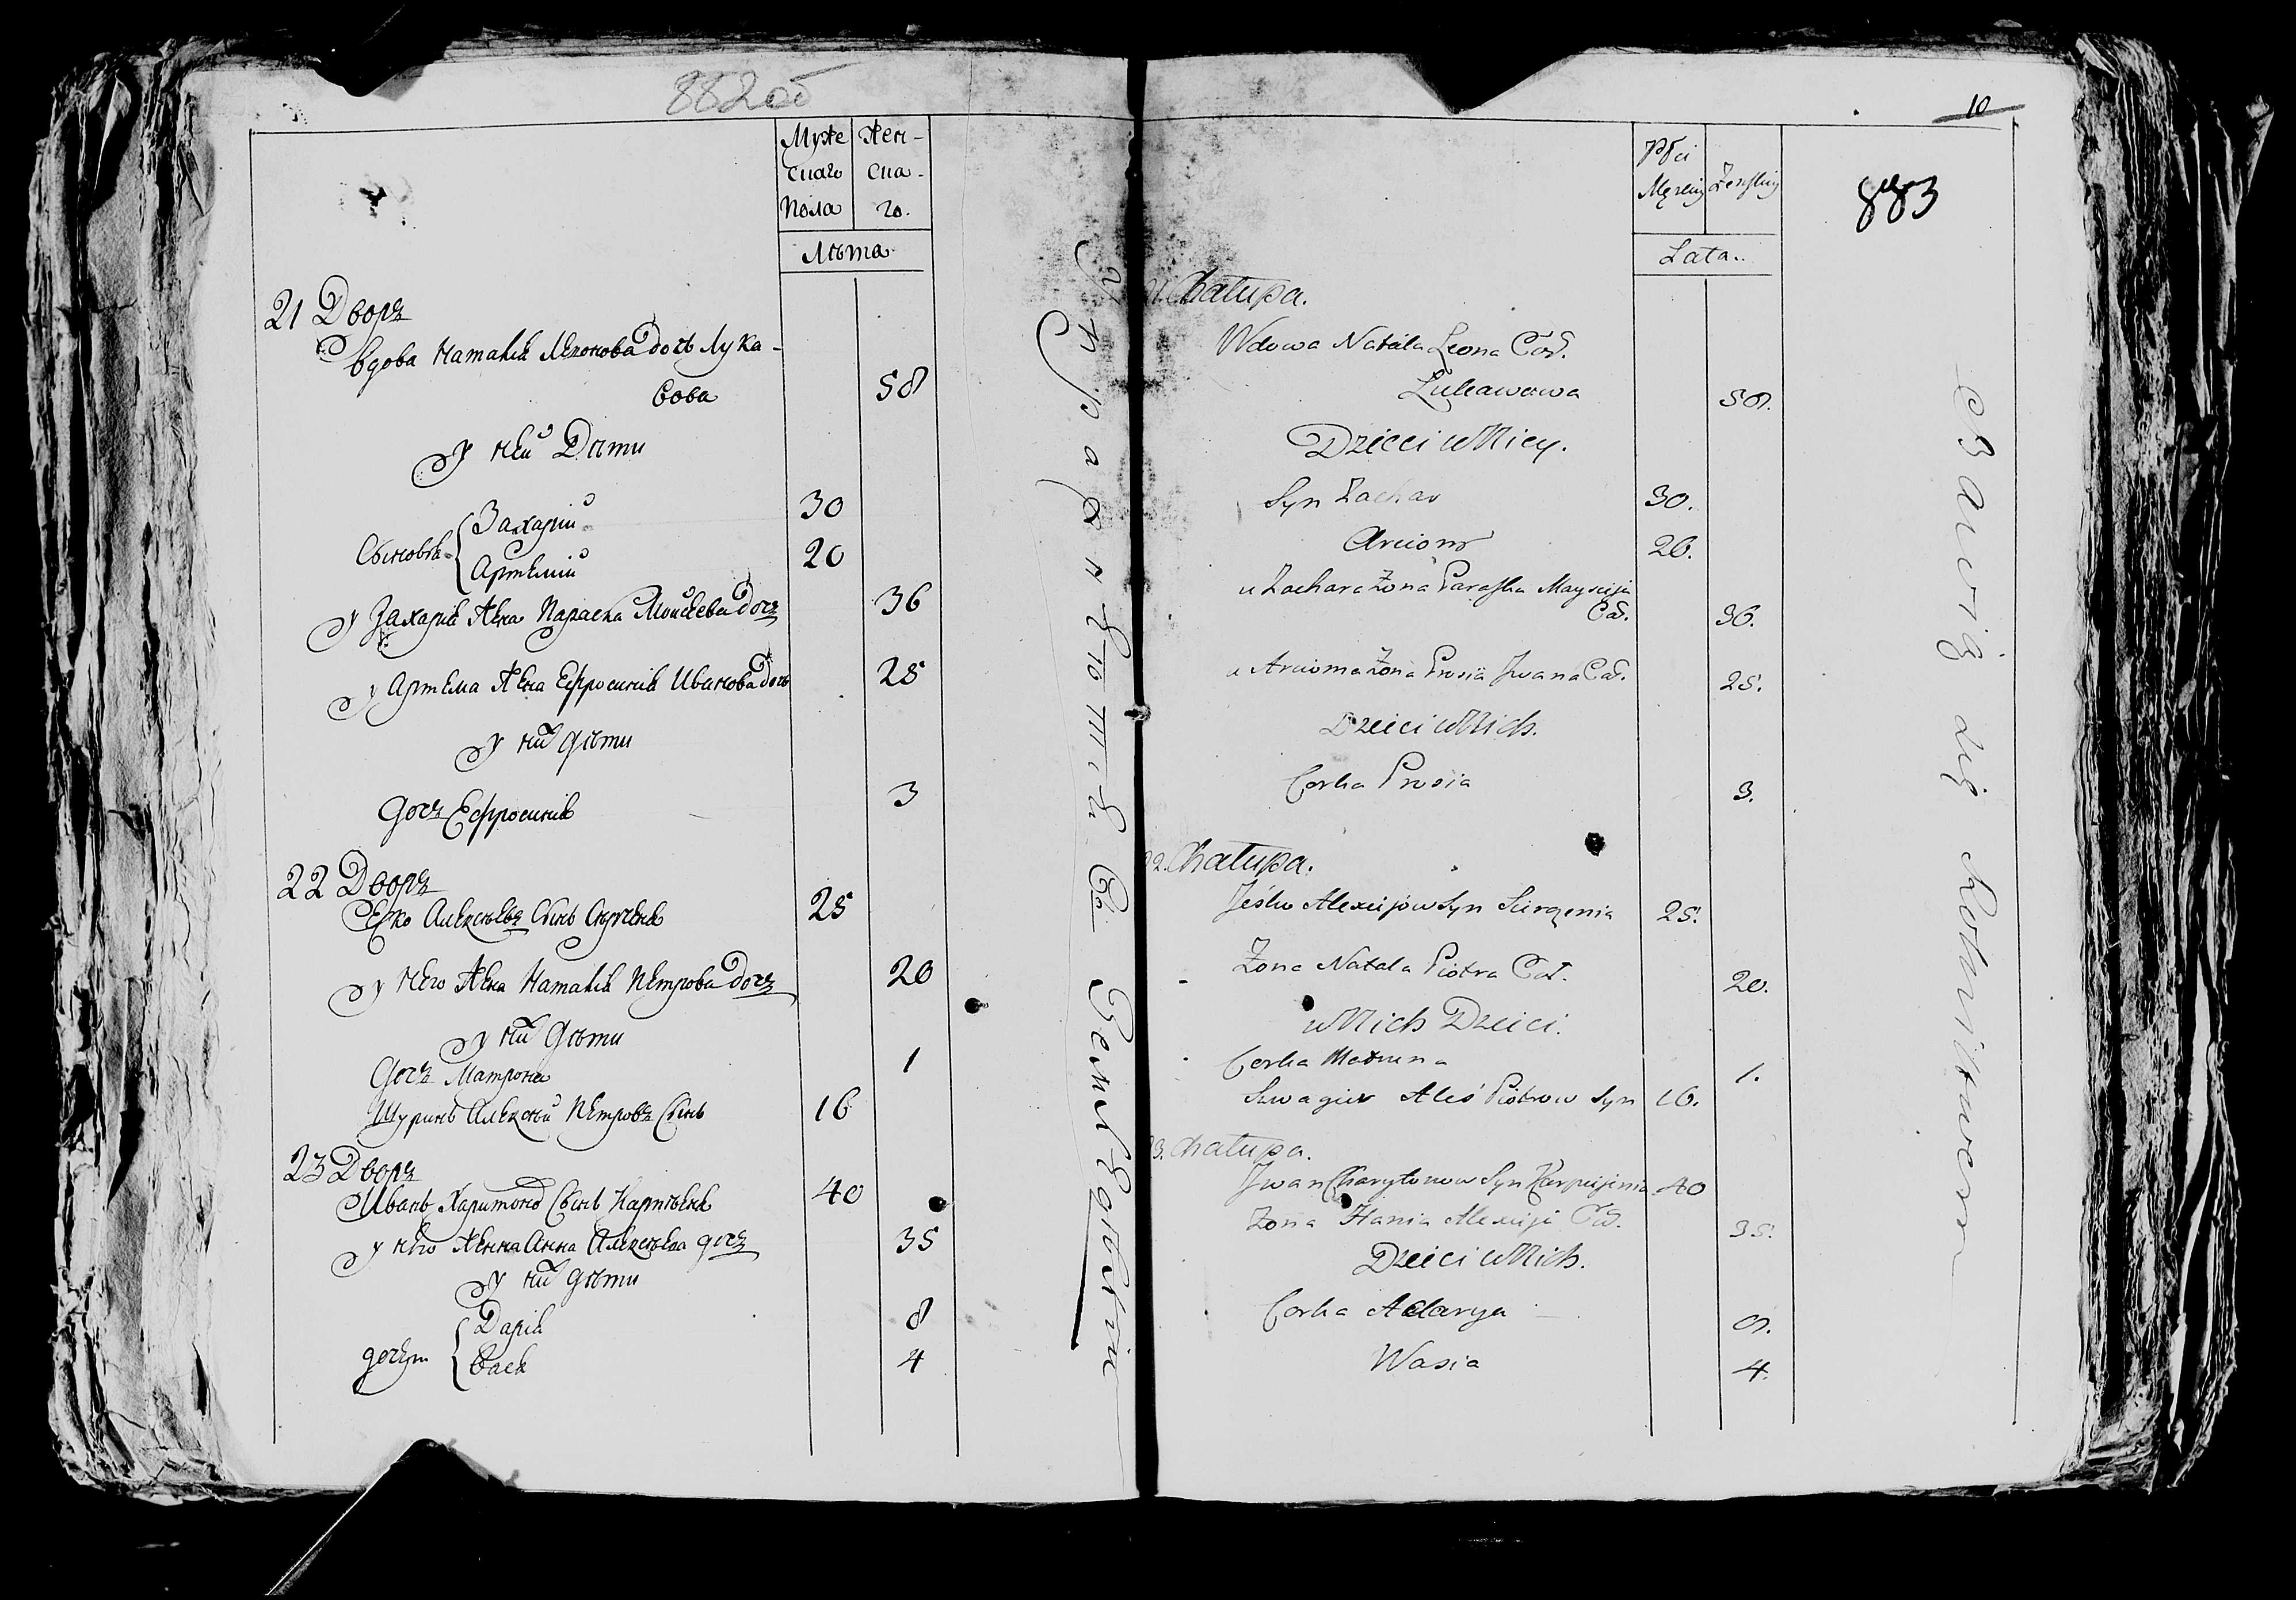 882 об
Муже Жен-
скаго ска-
Пола го.
Лѣта
21 Дворъ
Вдова Наталія Леонова дочь Лука-
сова 58
У ней Дѣти
Сыновья Захарій 30
Артемій 20
У Захарія Жена Параска Моисеева дочь 36
У Артема Жена Ефросинія Иванова дочь 25
У них дѣти
дочь Ефросинія 3
22 Дворъ
Еско Алексѣевъ Сынъ 25
У него Жена Наталія Петрова дочь 20
У них Дѣти
Дочь Матрона 1
Шуринъ Алексѣй Петровъ Сынъ 16
23 Дворъ
Иванъ Харитоновъ Сынъ 40
У него Жена Анна Алексѣева дочь 35
У них дѣти
дочери Дарія 8
Вася 4
10
883
Płci
Męzkiej Zenskiej
Lata.
Chałupa.
Wdowa Natala Leona Cór.
Lukawowa 58.
Dzieci u Niey.
Syn Zachar 30.
Arciom 20.
u Zachara Zona Paraska Maysieja
Cór. 36.
u Arcioma Zona Prosia Jwana Cór. 25.
Dzieci u Nich.
Corka Prosia 3.
22. Chałupa.
Jeśko Alexiejów Syn 25.
Zona Natala Piotra Cór. 20.
u Nich Dzieci.
Corka Matruna 1.
Szwagier Aleś Piotrow Syn 16.
3. Chałupa.
Jwan Charytonow Syn 40
Zona Hania Alexieja Cór. 35.
Dzieci u Nich.
Corka Adarya 8.
Wasia 4.